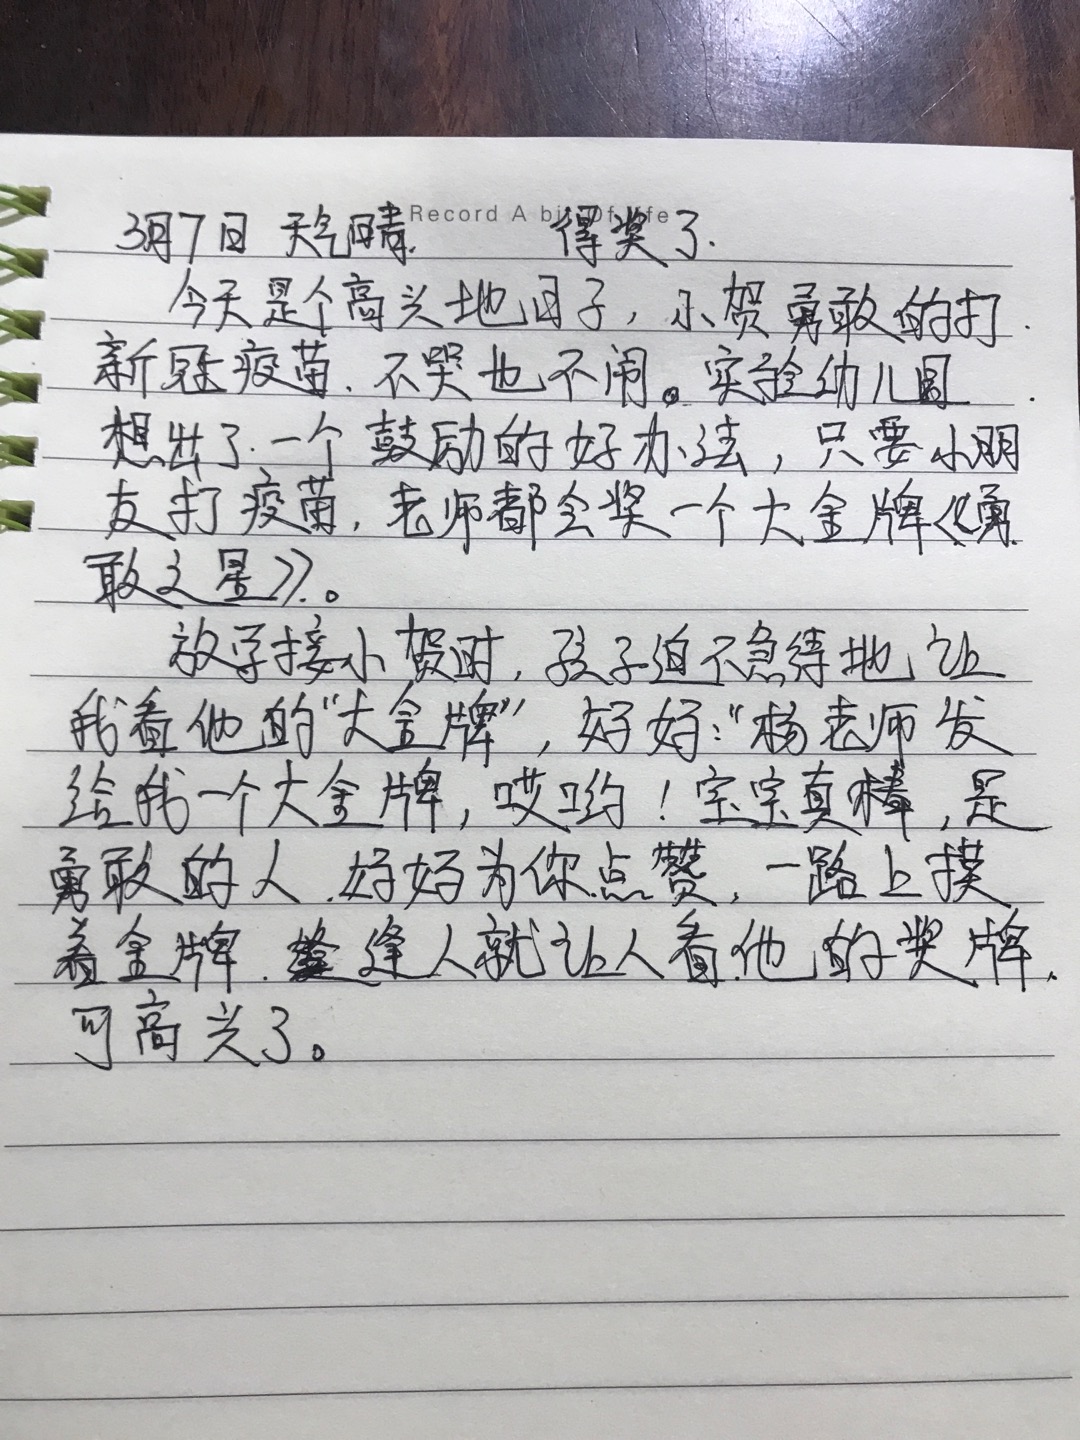 Record A bit Of life
3月7日 天气晴. 得奖了.
今天是个高兴地日子，小贺勇敢的打
新冠疫苗.不哭也不闹。实验幼儿园
想出了.一个鼓励的好办法，只要小朋
友打疫苗，老师都会奖一个大金牌《勇
敢之星》。
放学接小贺时，孩子迫不急待地让
我看他的“大金牌”，好好：“杨老师发
给我一个大金牌，哎哟！宝宝真棒，是
勇敢的人.好好为你点赞，一路上摸
着金牌.逢人就让人看他的奖牌，
可高兴了。